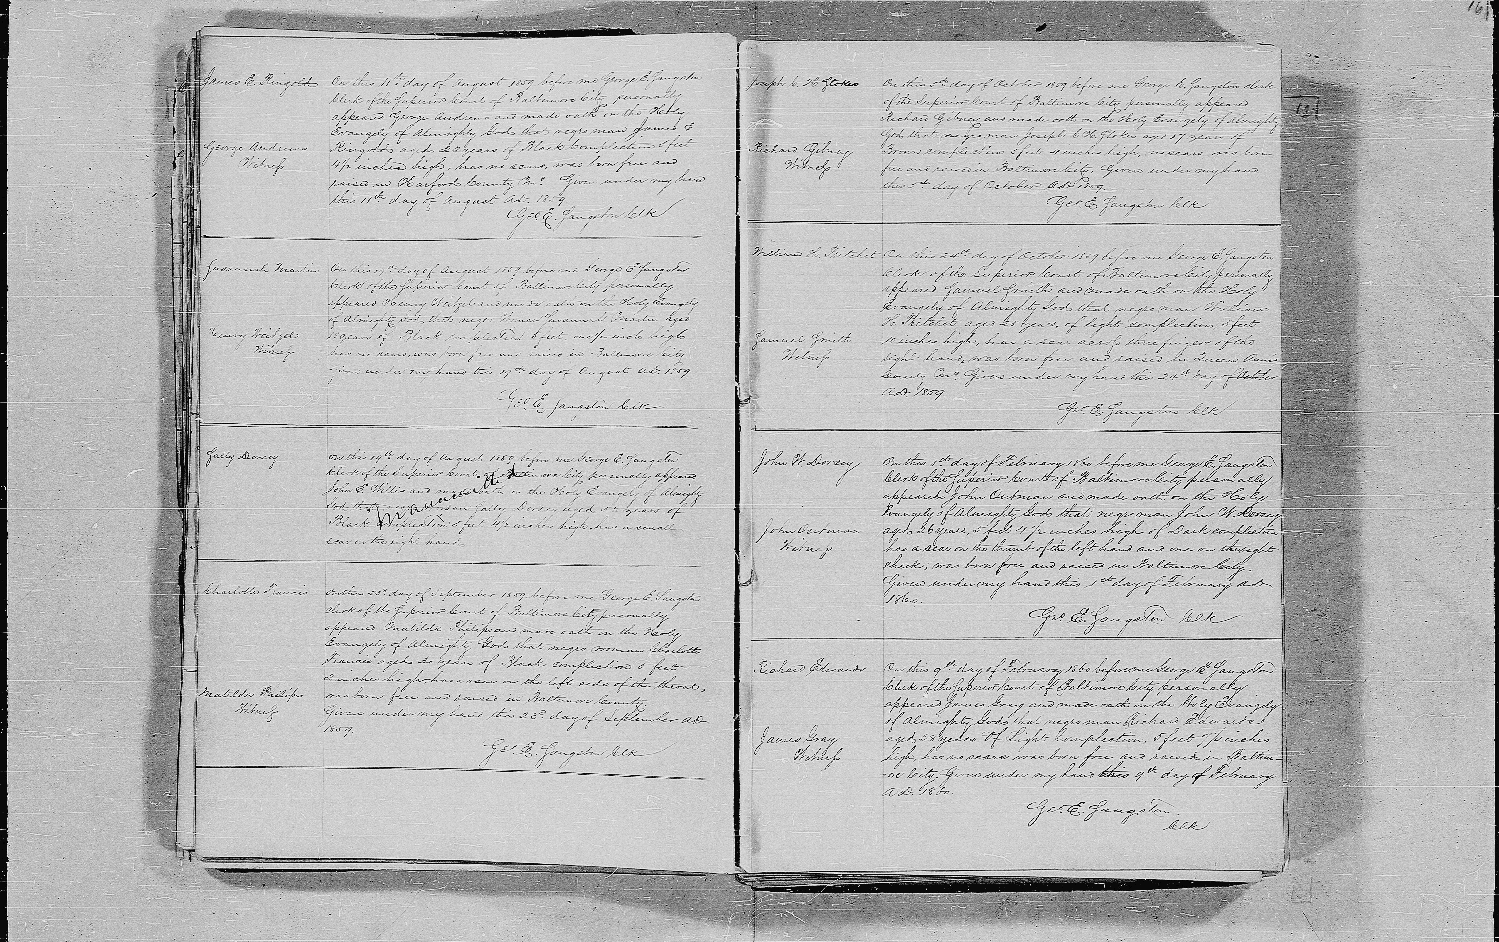 James E. Ringold
On this 11th day of August 1859 before me George E. Sangston
Clerk of the Superior Court of Baltimore City personally
appeared George Andrews and made oath on the Holy
Evangely of Almighty God that negro man James E
Ringold aged years of Black Complexion 5 feet
4½ inches high, has no scars, was born free and
raised in Harford County Md. Given under my hand
this 11th day of August A.D. 1859
George Andrews
Witness
Geo E. Sangston Clk
Susannah
On this day of August 1859 before me George E Sangston
Clerk of the Superior Court of Baltimore City personally
appeared Henry and made oath on the Holy Evangely
of Almighty God, that negro Woman Susannah aged
years of Black Complexion 5 feet inches high
has no scars, was born free and raised in Baltimore City
Given under my hand this 17th day of August A.D. 1859
Henry
Witness
Geo. E. Sangston Clk
Dorsey
On this 19th day of August 1859 before me George E. Sangston
Clerk of the Superior Court of Baltimore City personally appeared
John E. Willis and made oath on the Holy Evangely of Almighty
God that negro Dorsey aged years of
Black Complexion 5 feet 4½ inches high has a small
scar on the right hand
Charlotte Francis
On this 23d day of September 1859 before me George E. Sangston
Clerk of the Superior Court of Baltimore City, personally
appeared Matilda Philips and made oath on the Holy
Evangely of Almighty God that negro woman Charlotte
Francis aged years of Black complexion 5 feet
inches high has a scar on the left side of the throat,
was born free and raised in Baltimore County
Given under my hand this 23d day of September A.D.
1859.
Matilda Philips
Witness
Geo. E. Sangston Clk
Joseph C. H. Stokes
On this 5th day of October 1859 before me George E. Sangston clerk
of the Superior Court of Baltimore City personally appeared
Richard and made oath on the Holy Evangely of Almighty
God that negro man Joseph C. H. Stokes aged 17 years of
complexion 5 feet inches high, no scars was born
free and raised in Baltimore City. Given under my hand
this 5th day of October A.D. 1859
Richard
Witness
Geo E. Sangston Clk
William H. Pritchet
On this 24th day of October 1859 before me George E. Sangston
Clerk of the Superior Court of Baltimore City, personally
appeared Samuel Smith and made oath on the Holy
Evangely of Almighty God that negro man William
H. Pritchet, aged years, of light complexion 5 feet
inches high, has a scar on the fore finger of the
right hand, was born free and raised in Queen Anns
County Md. Given under my hand this 24th day of October
A.D. 1859
Samuel Smith
Witness
Geo E. Sangston Clk
John W Dorsey
On this 1st day of February 1860 before me George E. Sangston
Clerk of the Superior Court of Baltimore City personally
appeared John and made oath on the Holy
Evangely of Almighty God that negro man John W Dorsey
aged 26 years, 5 feet 4½ inches high of Dark complexion
has a scar on the thumb of the left hand and one on the right
cheek, was born free and raised in Baltimore City
Given under my hand this 1st day of February A.D.
1860.
John
Witness
Geo E. Sangston Clk
Richard Edwards
On this 9th day of February 1860 before me George E. Sangston
Clerk of the Superior Court of Baltimore City personally
appeared James Gray and made oath on the Holy Evangely
of Almighty God, that negro man Richard Edwards
aged years of Light Complexion, 5 feet 7½ inches
high, has no scars was born free and raised in Baltim-
ore City. Given under my hand this 9th day of February
A.D. 1860.
James Gray
Witness
Geo. E. Sangston
Clk